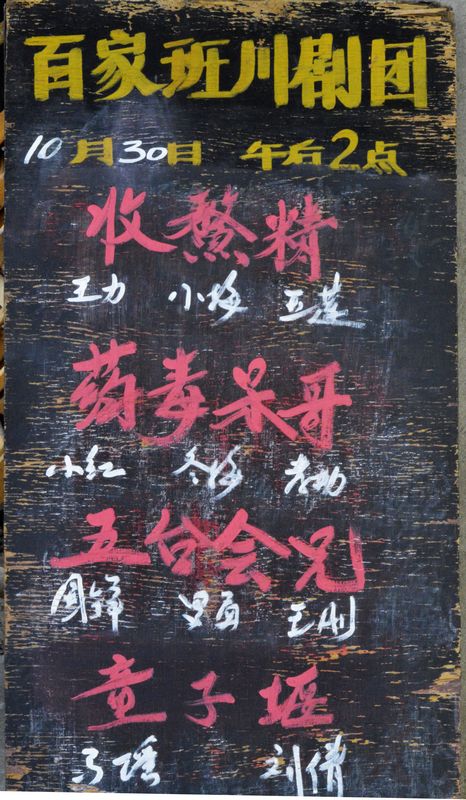 百家班川剧团
10月30日 午后2点
收鳌精
王力 小梅 玉莲
药毒呆哥
小红 冬梅
五台会兄
周锋 王刚
童子堰
刘倩